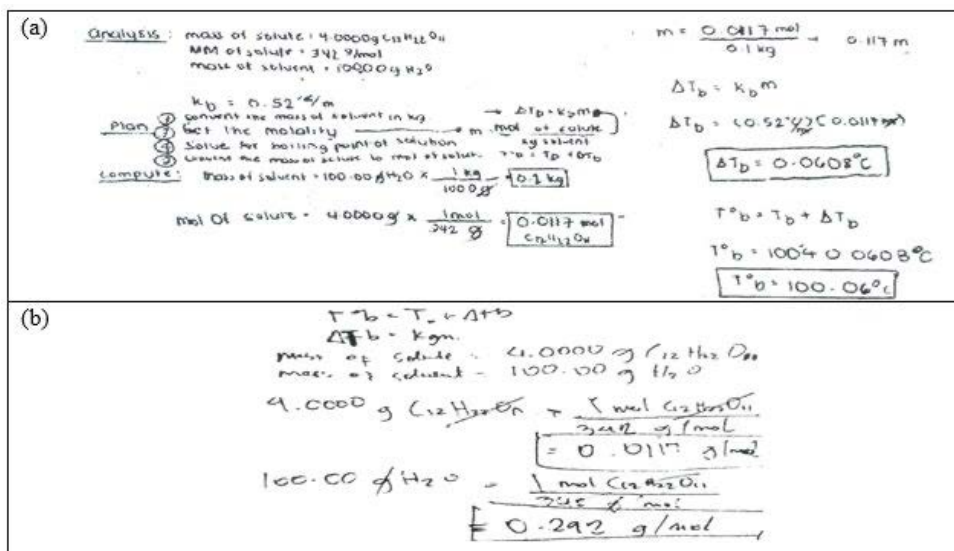 (a)
Analysis: mass of solute = 4.0000g C12H22O11
MM of solute = 342 g/mol
mass of solvent = 100.00 g H2O
Kb = 0.52 °C/m
Plan ① convert the mass of solvent in kg
② Get the molality → m mol of solute / kg solvent
④ Solve for boiling point of solution
③ the mass of solute to mol of solute. T°b = Tb + ΔTb
→ ΔTb = Kbm
compute: mass of solvent = 100.00 g H2O × 1 kg / 1000 g = 0.1 kg
mol Of solute = 4.0000 g × 1 mol / 342 g = 0.0117 mol C12H22O11
m = 0.0117 mol / 0.1 kg = 0.117 m
ΔTb = Kbm
ΔTb = (0.52 °C/m)(0.0117 m)
ΔTb = 0.0608°C
T°b = Tb + ΔTb
T°b = 100 + 0.0608°C
T°b = 100.06°C
(b)
T°b = T + Δtb
ΔTb =
mass of solute = 4.0000 g C12H22O11
mass of solvent = 100.00 g H2O
4.0000 g C12H22O11 × 1 mol C12H22O11 / 342 g/mol
= 0.0117 g/mol
100.00 g H2O = 1 mol C12H22O11 / g mol
= 0.292 g/mol